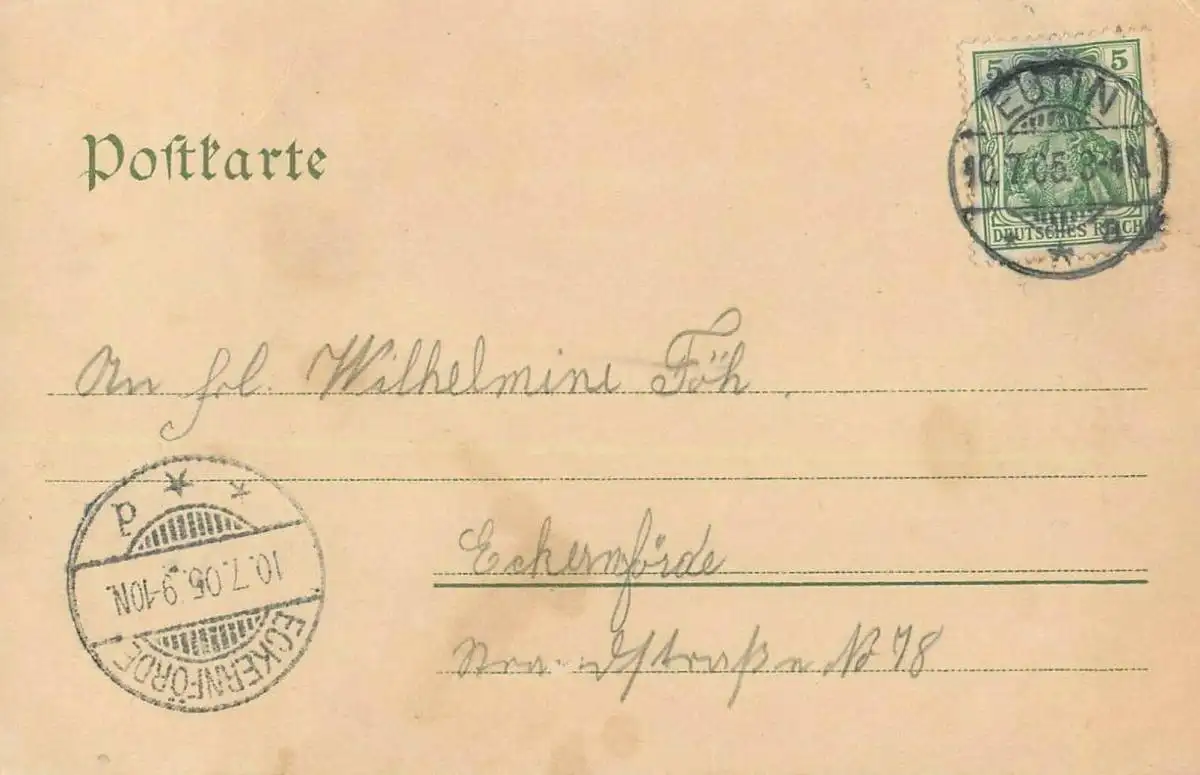 5 5
EUTIN
10.7.05.3-4N.
a
DEUTSCHES REICH
Postkarte
An Frl. Wilhelmine Föh.
Eckernförde
N 78
d
10.7.05.9-10N.
ECKERNFÖRDE